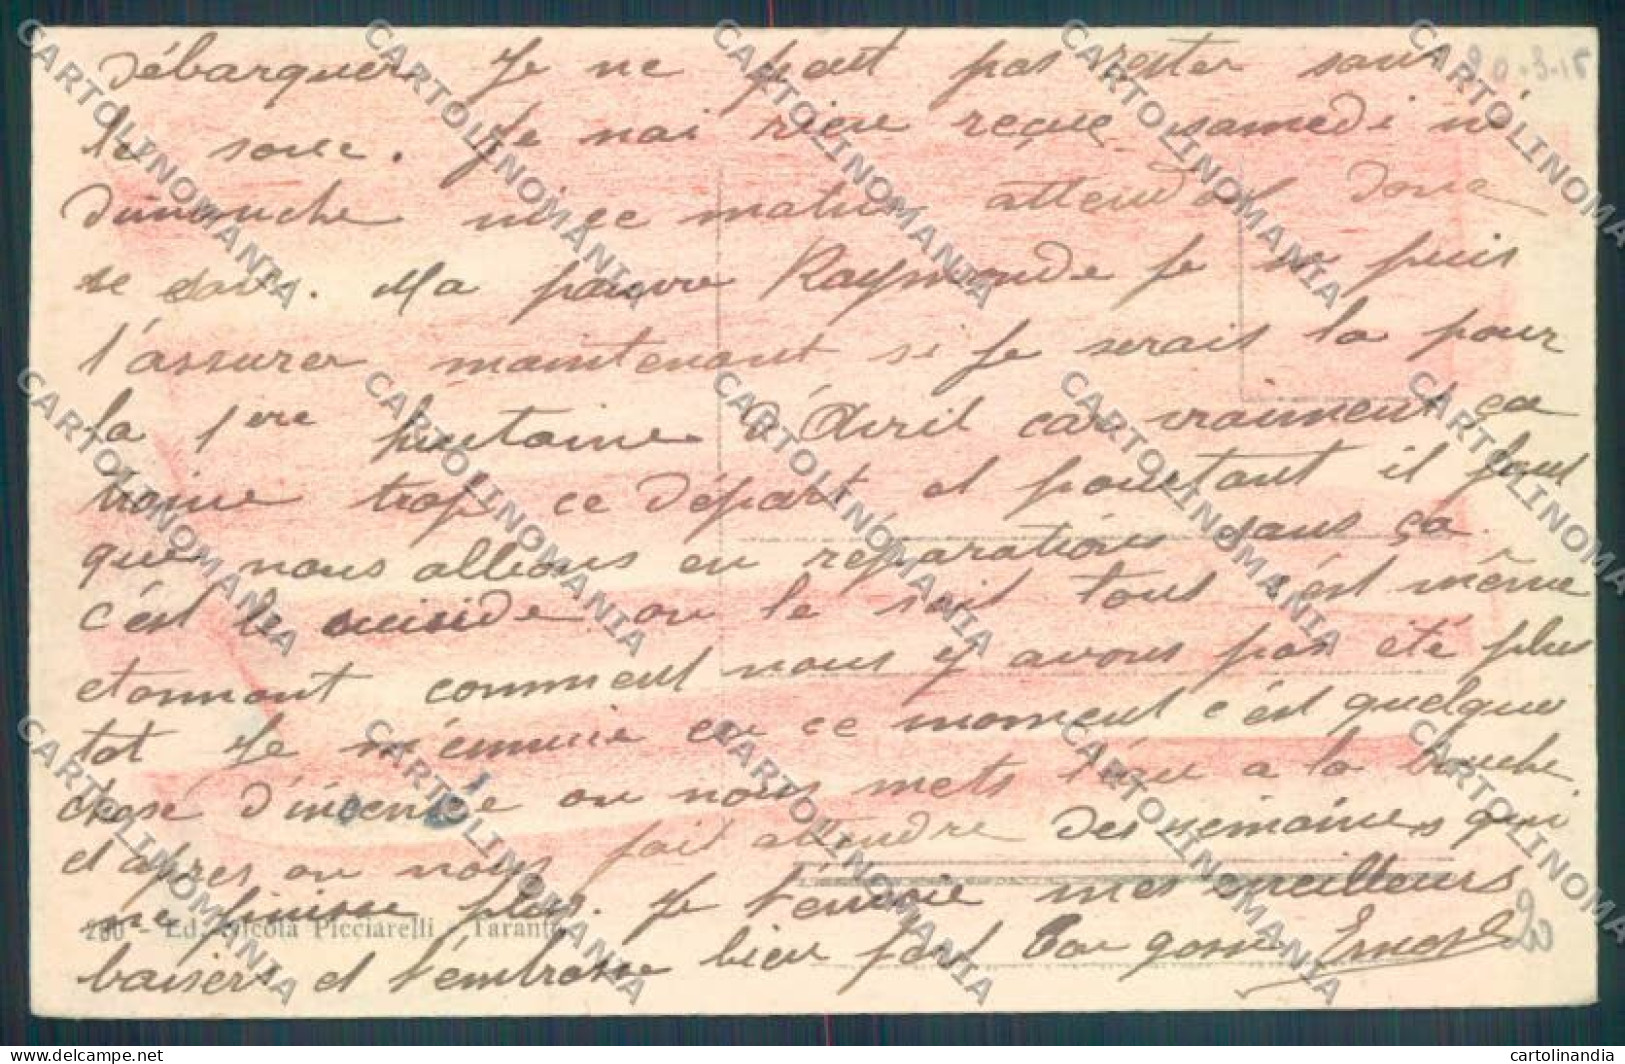 débarquer. Je ne peut pas rester sans
le sous. Je nai rien reçue samedi ni
dimanche ni ce matin attendons donc
se soir. Ma pauvre Raymonde je ne puis
l'assurer maintenant si je serais la pour
la 1ere huitaine d'Avril car vraiment ça
traine trop ce départ et pourtant il faut
que nous allions en réparations sans ça
c'est le suicide on le sait tous c'est même
etonnant comment nous y avons pas été plus
tot Je m'ennuie en ce moment c'est quelque
chose d'insensé on nous mets l'eau a la bouche
et apres on nous fait attendre des semaines qui
ne finisse plus. Je t'envoie mes meilleurs
baisers et t'embrasse bien fort Ton gosse Ernest
280 - Ed. Nicola Picciarelli - Taranto
CARTOLINOMANIA
https://www.delcampe.net
cartolinandia